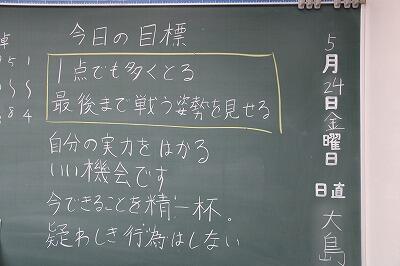 今日の目標
1点でも多くとる
最後まで戦う姿勢を見せる
自分の実力をはかる
いい機会です
今できることを精一杯。
疑わしき行為はしない
5月24日金曜日
日直
大島